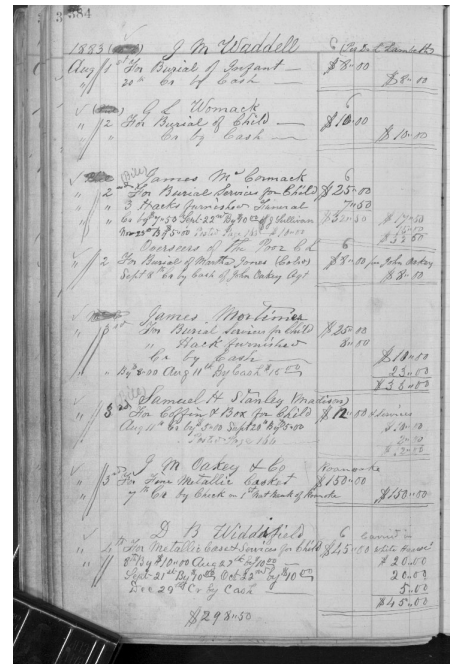 384
1883 J M Waddell 6
Aug 1st For Burial of Infant $8.00
" 20th Cr by Cash $8.00
G L Womack 6
" 2 For Burial of Child $10.00
" " Cr by Cash $10.00
James McCormack 6
" 2nd For Burial Services for Child $25.00
" " 3 Hacks furnished Funeral 7.50
" " Cr by 7.50 Sept 22nd By $10.00 Sullivan $32.50 $17.50
Nov 23rd By 5.00
Overseers of the Poor 6
" 2 For Burial of Martha Jones $8.00 for John Oakey
Sept 8th Cr by Cash of John Oakey Agt $8.00
James Mortimer
" 3rd For Burial Services for Child $25.00
" Hack furnished
Cr by Cash $10.00
" By Aug 11th By Cash
Samuel H Stanley (Madison)
" 3rd For Coffin & Box for Child $12.00
Aug 11th Cr by 5.00 Sept 20th By 5.00
J M Oakey & Co Roanoke
" 3rd For Fine Metallic Casket $150.00
" 7th Cr by Check on 1st Nat Bank of Roanoke $150.00
D B Widdifield 6
" 4th For Metallic Case & Services for Child $45.00 White Hearse
" 8th By $10.00 Aug 23rd by 10.00 $20.00
Sept 21st By 10.00 Oct 22nd by $10.00 20.00
Dec 29th Cr by Cash 5.00
$45.00
$298.50